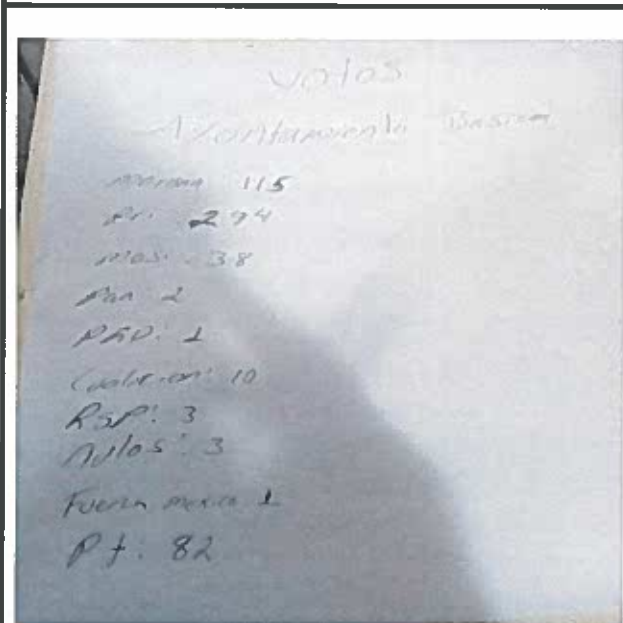 Votos
Ayuntamiento
morena 115
Pri: 294
mas: 38
Pan 2
PRD: 1
Coalicion: 10
RSP: 3
Nulos: 3
Fuerza mexico 1
Pt: 82